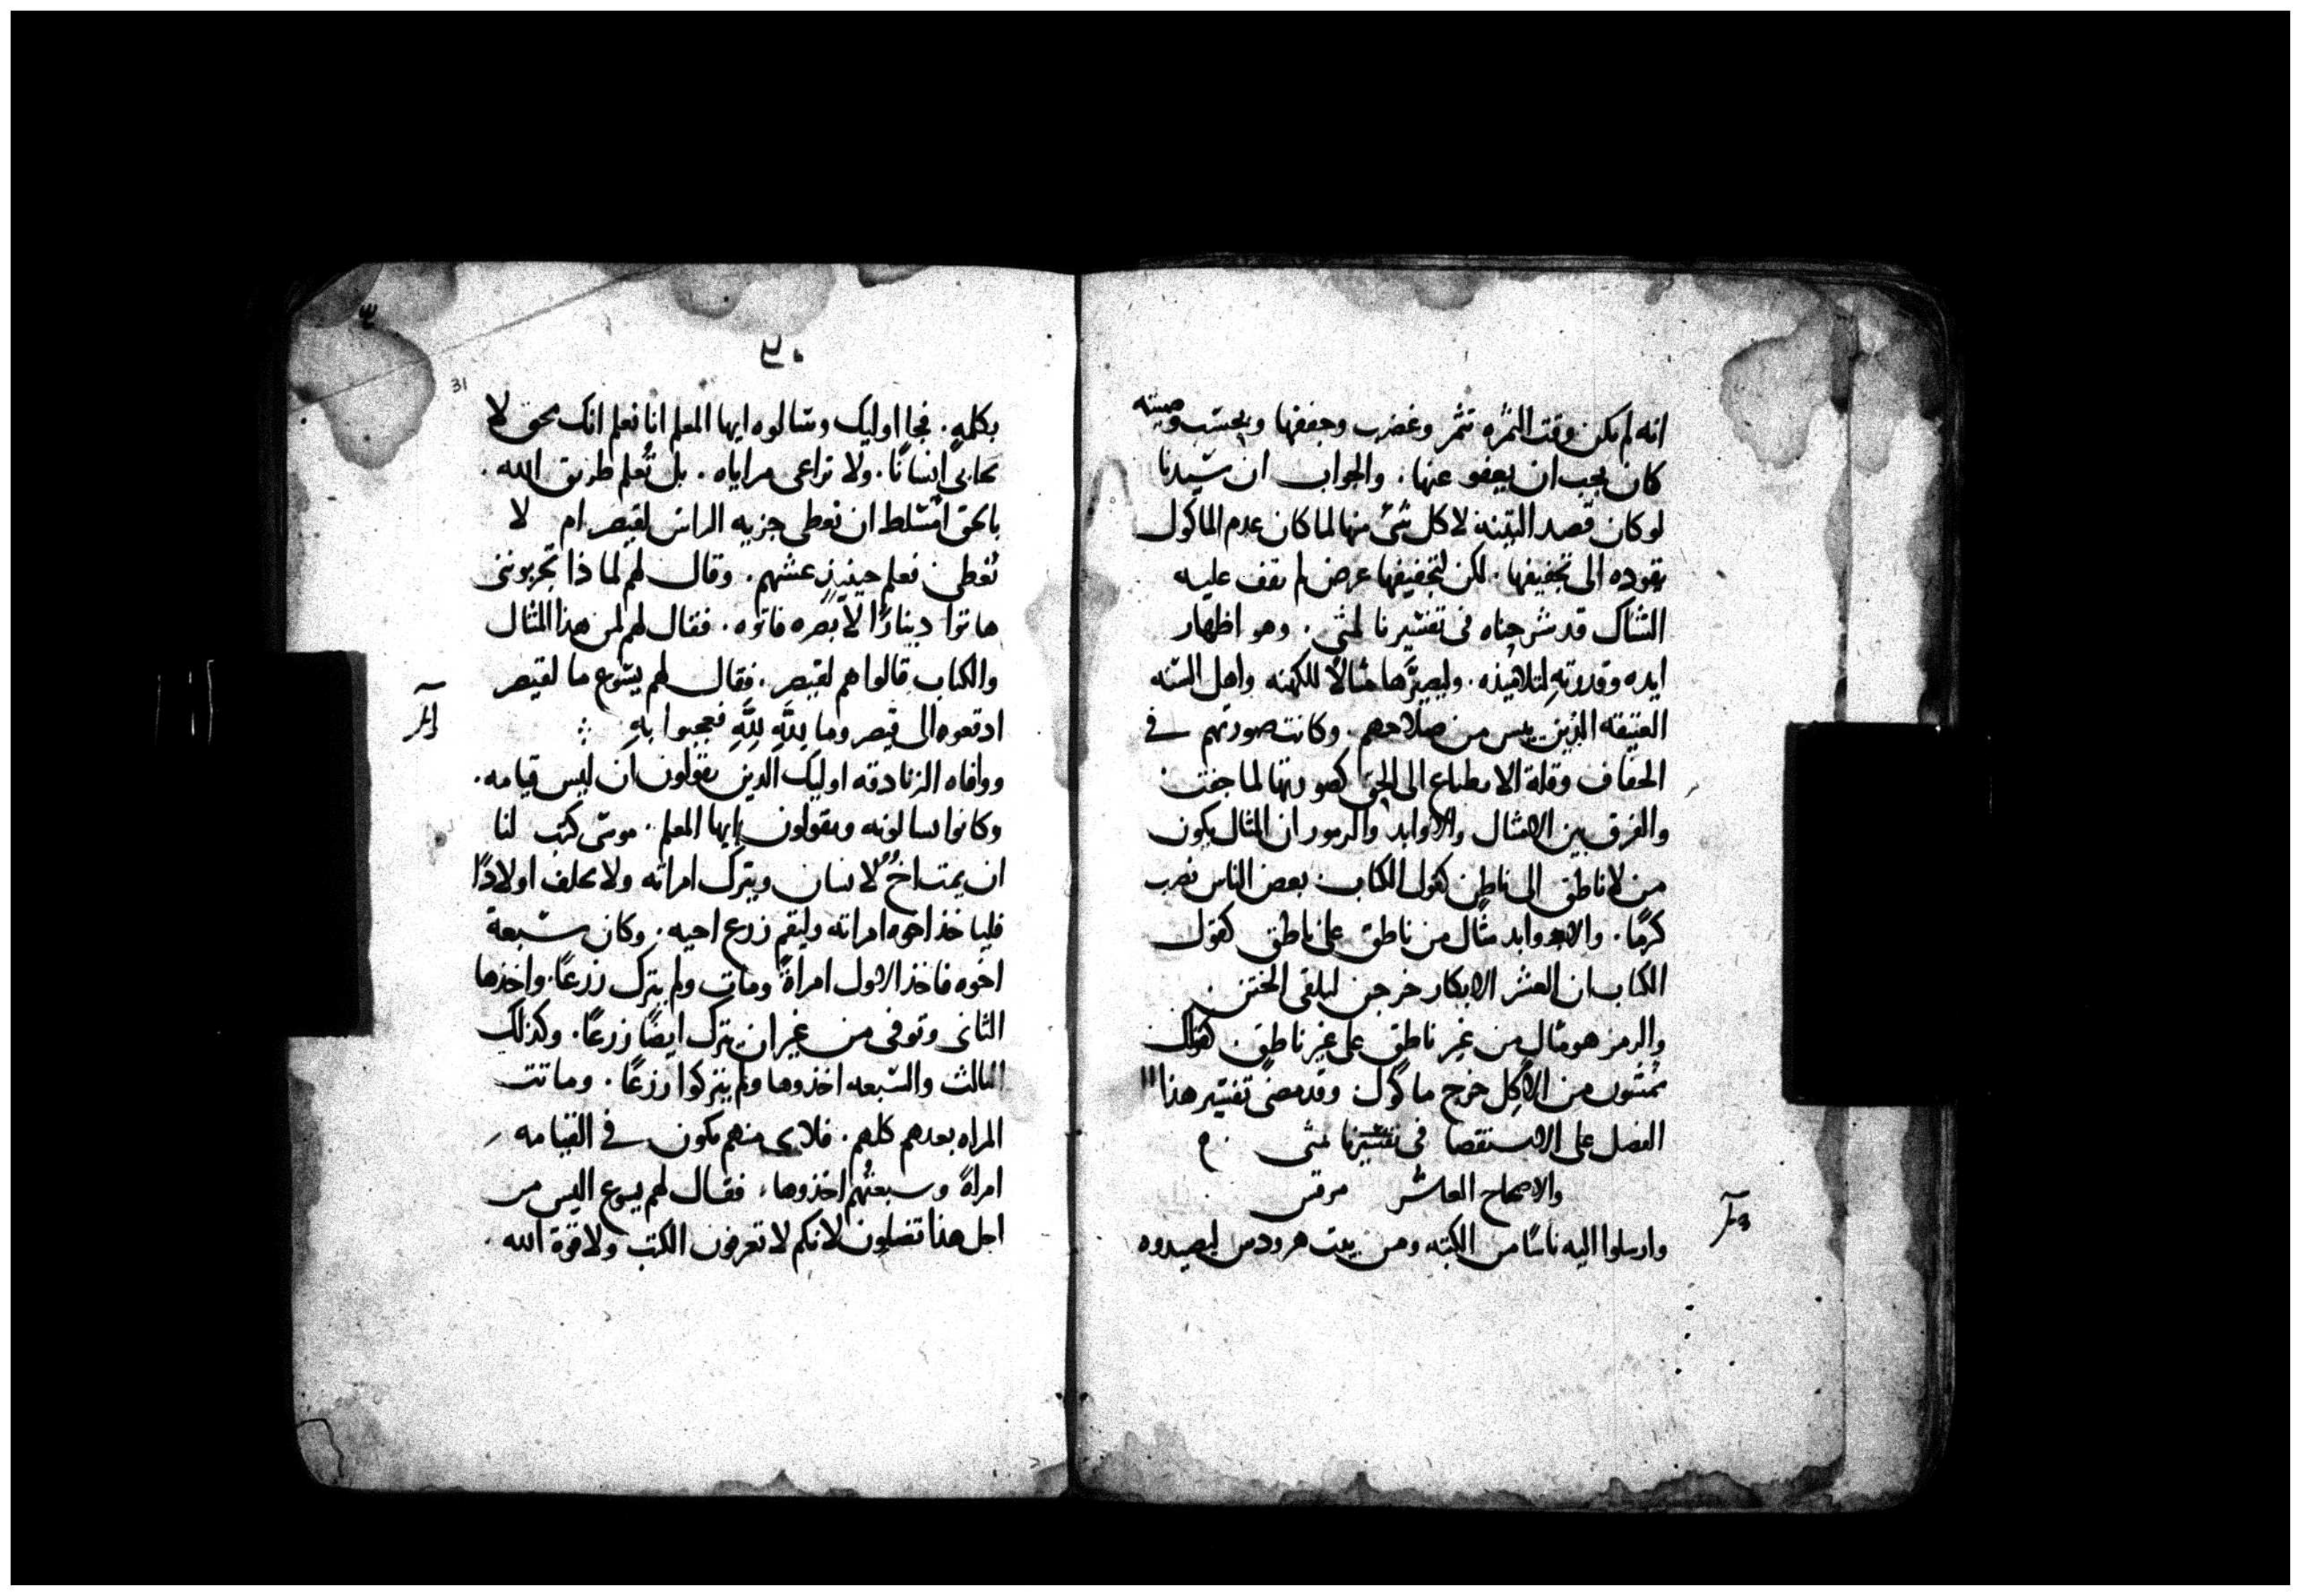 انه لم يكن وقت الثمره تثمر وغضب وجففها وبحسب وصيته
كان يجب ان يعفو عنها . والجواب ان سيدنا
لو كان قصد التينه لاكل شئ منها لما كان عدم الماكول
يقوده الى تجفيفها . لكن لتجفيفها غرض لم يقف عليه
الشاك قد شرحناه فى تفسيرنا لمتى . وهو اظهار
ايده وقدرته لتلاميذه . وليصيرها مثالًا للكهنه واهل السنه
العتيقه الذين يبس من صلاحهم . وكانت صورتهم فى
الجفاف وقلة الانطباع الى الحق كصورتها لما جفت .
والفرق بين الامثال والاوابد والرموز ان المثال يكون
من لا ناطق الى ناطق كقول الكتاب . بعض الناس نصب
كرمًا . والاوابد مثال من ناطق على ناطق كقول
الكتاب ان العشر الابكار خرجن ليلقى الختن .
والرمز هو مثال من غير ناطق على غير ناطق . كقولك
شمشون من الاكل خرج ماكول . وقد مضى تفسير هذا
الفصل على الاستقصا فى تفسيرنا لمتى .
والاصحاح العاشر مرقس
وارسلوا اليه ناسًا من الكتبه ومن بيت هرودس ليصيدوه
٣٠
31
بكلمه . فجا اوليك وسالوه ايها المعلم انا نعلم انك محق لا
تحابى انسانًا . ولا تراعى مراياه . بل تعلم طريق الله .
بالحق اتسلط ان نعطى جزيه الراس لقيصر ام لا
نعطى فعلم حينيذ غشهم . وقال لهم لماذا تجربوننى
هاتوا دينارًا لابصره فاتوه . فقال لهم لمن هذا المثال
والكتاب قالوا هم لقيصر . فقال لهم يسوع ما لقيصر
ادفعوه الى قيصر وما لله لله فعجبوا به
ووافاه الزنادقه اوليك الذين يقولون ان ليس قيامه .
وكانوا يسالونه ويقولون ايها المعلم . موسى كتب لنا
ان يمت اخ لانسان ويترك امراته ولا يخلف اولادًا
فلياخذ اخوه امراته وليقم زرع اخيه . وكان سبعة
اخوه فاخذ الاول امراةً ومات ولم يترك زرعًا . واخذها
الثانى وتوفى من غير ان يترك ايضًا زرعًا . وكذلك
الثالث والسبعه اخذوها ولم يتركوا زرعًا . وماتت
المراه بعدهم كلهم . فلاى منهم تكون فى القيامه
امراةً وسبعتهم اخذوها . فقال لهم يسوع اليس من
اجل هذا تضلون لانكم لا تعرفون الكتب ولا قوة الله .